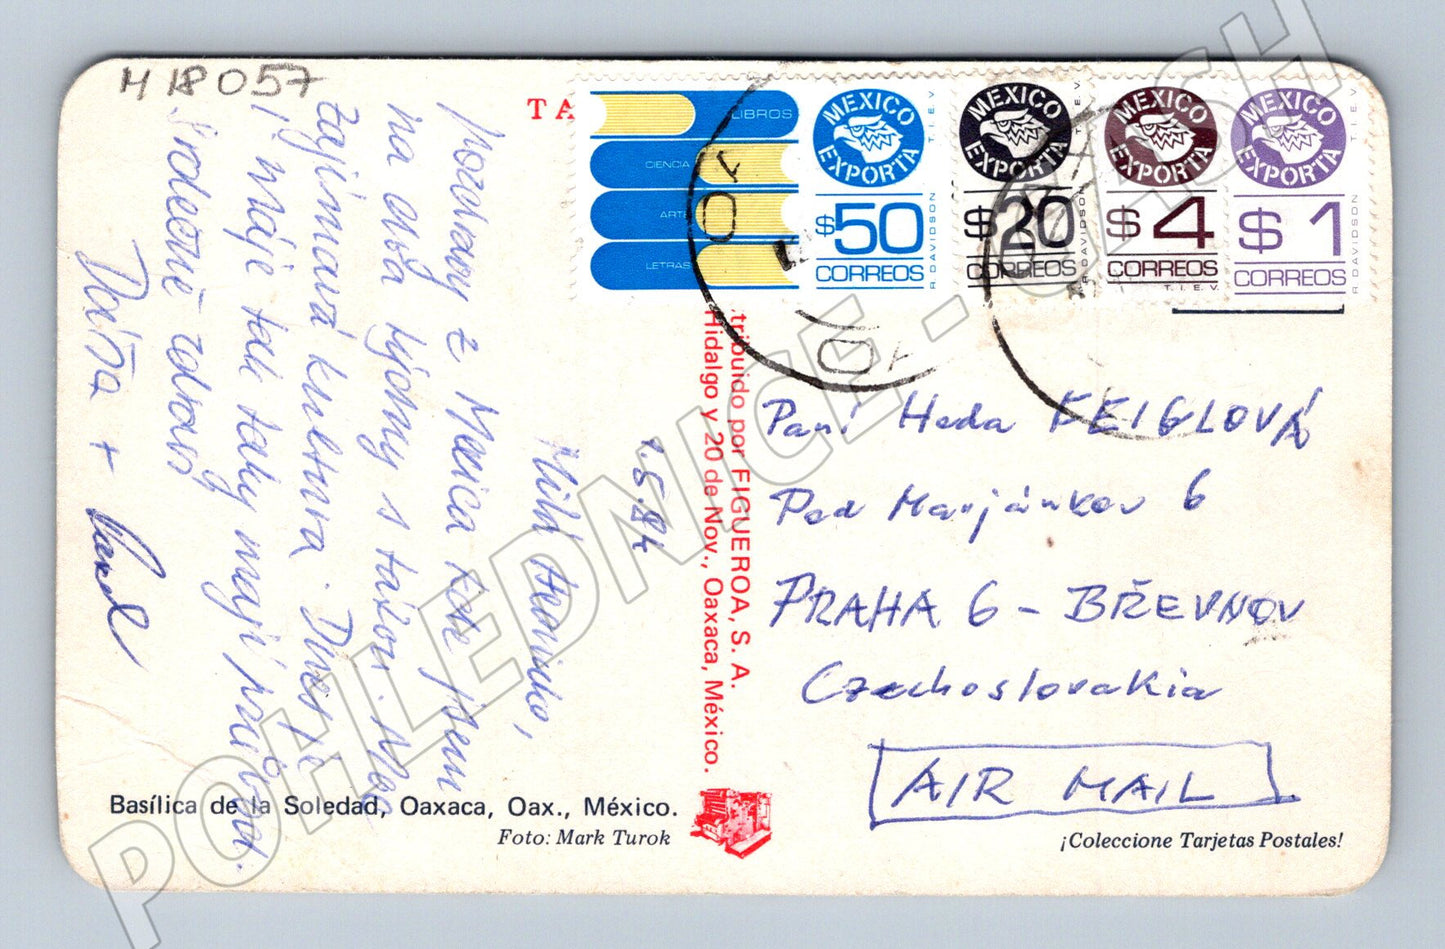 M 18057
TA
LIBROS
CIENCIA
ARTE
LETRAS
MEXICO
EXPORTA
$50
CORREOS
T.I.E.V.
R. DAVIDSON
MEXICO
EXPORTA
$20
CORREOS
T.I.E.V.
R. DAVIDSON
MEXICO
EXPORTA
$4
CORREOS
T.I.E.V.
MEXICO
EXPORTA
$1
CORREOS
T.I.E.V.
R. DAVIDSON
10
10
1.5.84
Milá
pozdravy z Mexica kde jsem
na dva týdny s
zajímavá kultura.
i máje tak taky mají
Srdečně zdraví
Dáša +
tribuido por FIGUEROA, S. A.
Hidalgo y 20 de Nov., Oaxaca, México.
Paní Heda FEIGLOVÁ
Pod Marjánkou 6
PRAHA 6 - BŘEVNOV
Czechoslovakia
AIR MAIL
Basílica de la Soledad, Oaxaca, Oax., México.
Foto: Mark Turok
¡Coleccione Tarjetas Postales!
POHLEDNICE - CASH